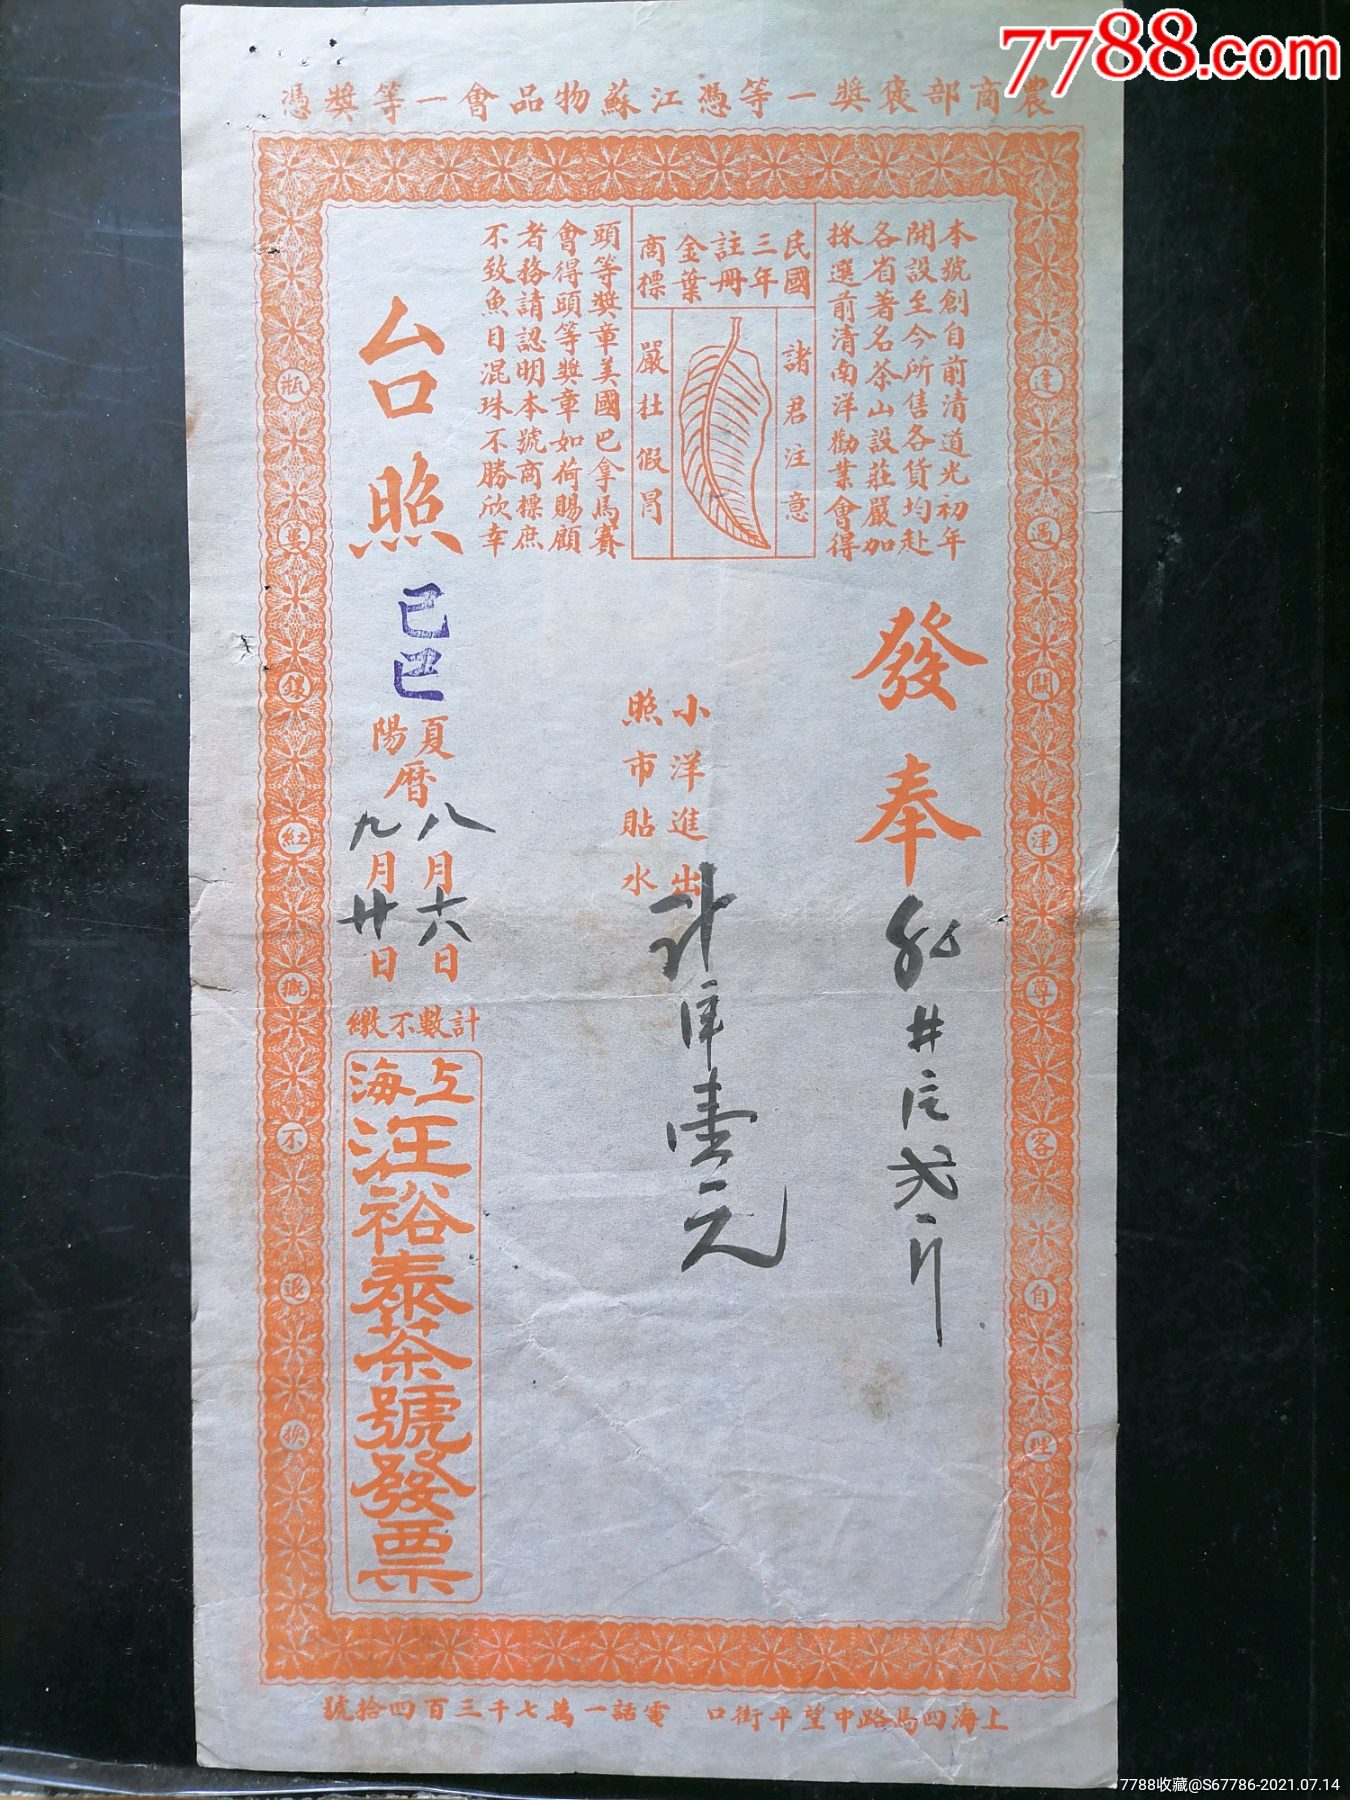 7788.com
農商部褒獎一等憑江蘇物品會一等獎憑
本號創自前清道光初年
開設至今所售各貨均赴
各省著名茶山設莊嚴加
採選前清南洋勸業會得
民國
三年
註冊
金葉
商標
諸君注意
嚴杜假冐
頭等獎章美國巴拿馬賽
會得頭等獎章如荷賜顧
者務請認明本號商標庶
不致魚目混珠不勝欣幸
發奉
小洋進出
照市貼水
計洋壹元
台照
己巳
夏曆八月十六日
陽曆九月廿日
計數不繳
上海
汪裕泰茶號發票
逢遇關津尊客自理
瓶罍鏍紅概不退換
上海四馬路中望平街口
電話一萬七千三百四拾號
7788收藏@S67786-2021.07.14